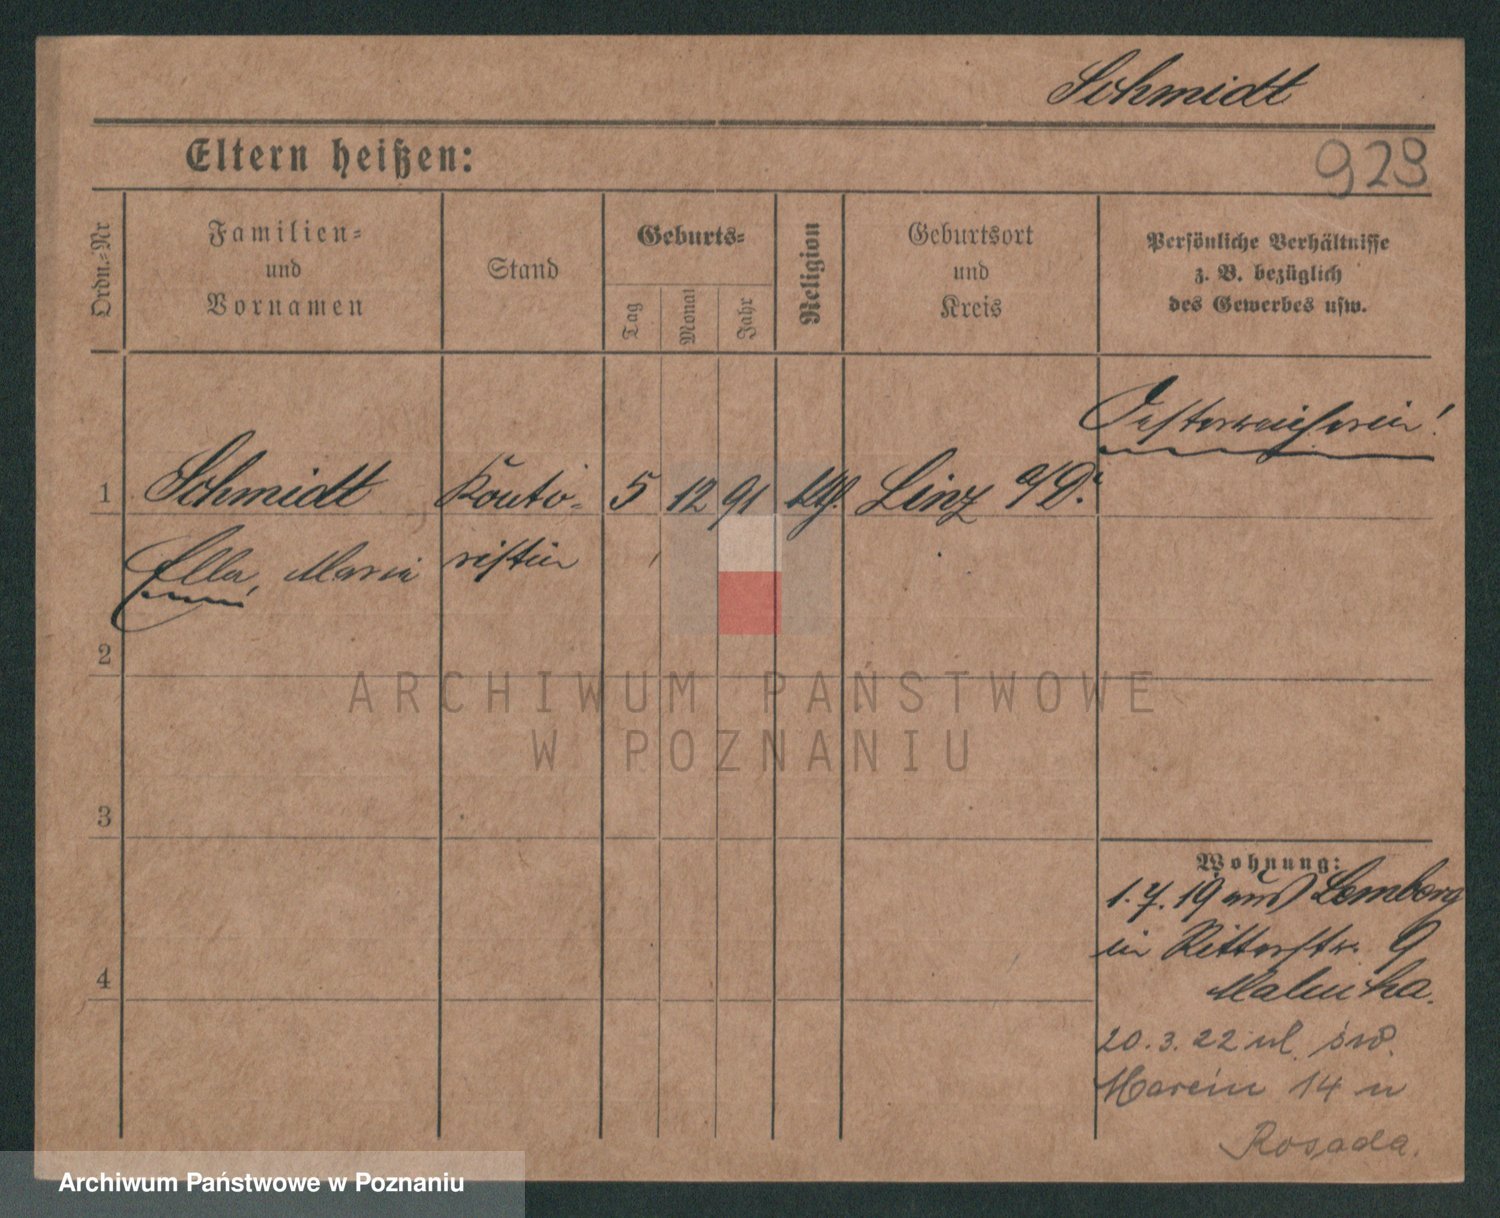 Schmidt
Eltern heißen:
923
Ordn.-Nr
Familien-
und
Vornamen
Stand
Geburts-
Tag
Monat
Jahr
Religion
Geburtsort
und
Kreis
Persönliche Verhältnisse
z. B. bezüglich
des Gewerbes usw.
Oesterreicherin!
1 Schmidt Konto- 5 12 91 Linz a/D.
Ella, Maria ristin
2
3
4
Wohnung:
1.7.19 aus Lemberg
in Ritterstr. 9
20.3.22 ul. św.
Marcin 14 u
Rosada.
ARCHIWUM PAŃSTWOWE
W POZNANIU
Archiwum Państwowe w Poznaniu